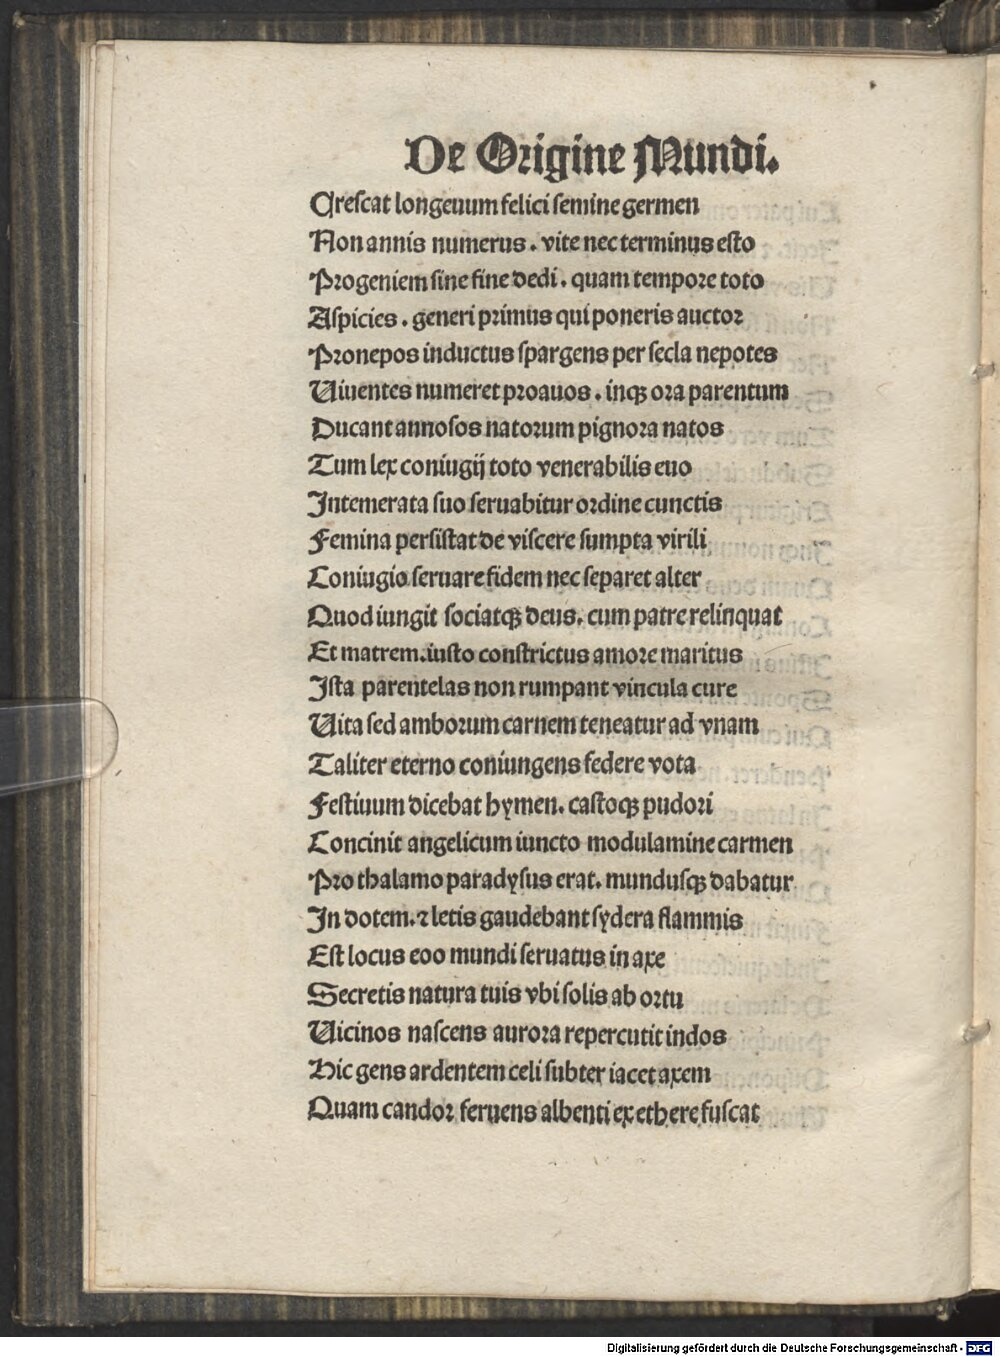 De Origine Mundi.
Crescat longeuum felici semine germen
Non annis numerus. vite nec terminus esto
Progeniem sine fine dedi. quam tempore toto
Aspicies. generi primus qui poneris auctor
Pronepos inductus spargens per secla nepotes
Uiuentes numeret proauos. inqꝫ ora parentum
Ducant annosos natorum pignora natos
Tum lex coniugij toto venerabilis euo
Intemerata suo seruabitur ordine cunctis
Femina persistat de viscere sumpta virili
Coniugio seruare fidem nec separet alter
Quod iungit sociatqꝫ deus. cum patre relinquat
Et matrem. iusto constrictus amore maritus
Ista parentelas non rumpant vincula cure
Uita sed amborum carnem teneatur ad vnam
Taliter eterno coniungens federe vota
Festiuum dicebat hymen. castoqꝫ pudori
Concinit angelicum iuncto modulamine carmen
Pro thalamo paradysus erat. mundusqꝫ dabatur
In dotem. ⁊ letis gaudebant sydera flammis
Est locus eoo mundi seruatus in axe
Secretis natura tuis vbi solis ab ortu
Uicinos nascens aurora repercutit indos
Hic gens ardentem celi subter iacet axem
Quam candor feruens albenti ex ethere fuscat
Digitalisierung gefördert durch die Deutsche Forschungsgemeinschaft - DFG